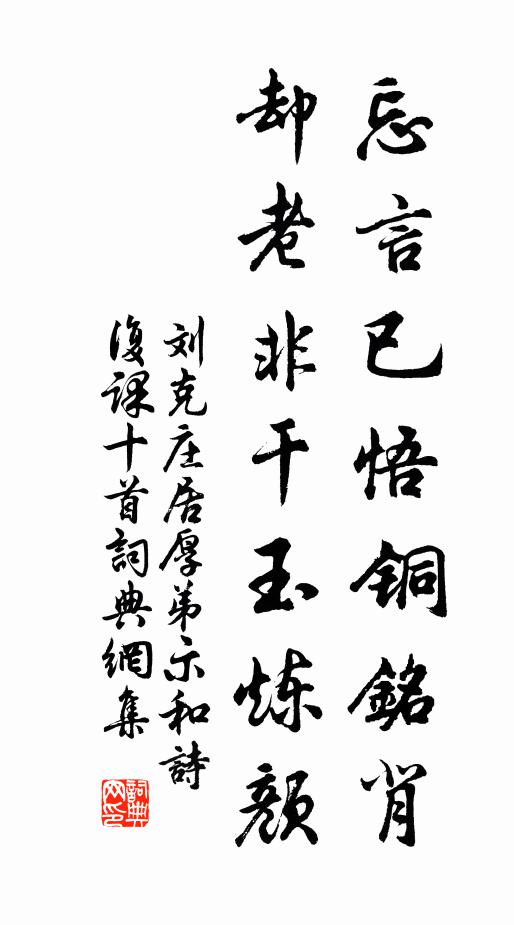 忘言已悟铜銘背
却老非干玉炼颜
刘克庄居厚弟示和詩
復課十首詞典網集
詞典网印